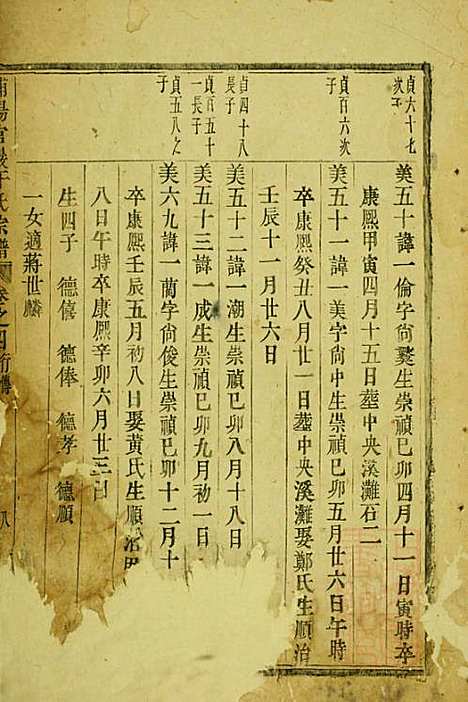 貞六十七
次子
美五十諱一倫字尚夔生崇禎已卯四月十一日寅時卒
康熙甲寅四月十五日塟中央溪灘石二
貞百六次
子
美五十一諱一美字尚中生崇禎已卯五月廿六日午時
卒康熙癸丑八月廿一日塟中央溪灘娶鄭氏生順治
壬辰十一月廿六日
貞四十八
長子
美五十二諱一潮生崇禎已卯八月十八日
貞百五十
一長子
美五十三諱一成生崇禎已卯九月初一日
貞五八之
子
美六九諱一蘭字尚俊生崇禎已卯十二月十
卒康熙壬辰五月初八日娶黃氏生順治
八日午時卒康熙辛卯六月廿三日
生四子 德僖 德俸 德孝 德順
一女適蔣世麟
陽宮
氏宗譜 卷之四行傳 八